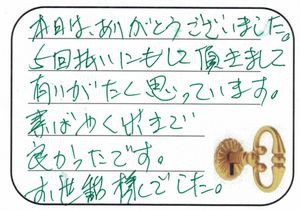 本日は、ありがとうございました。
5回払いにもして頂きまして
有いがたく思っています。
素ばやく出きて
良かったです。
お世話様でした。